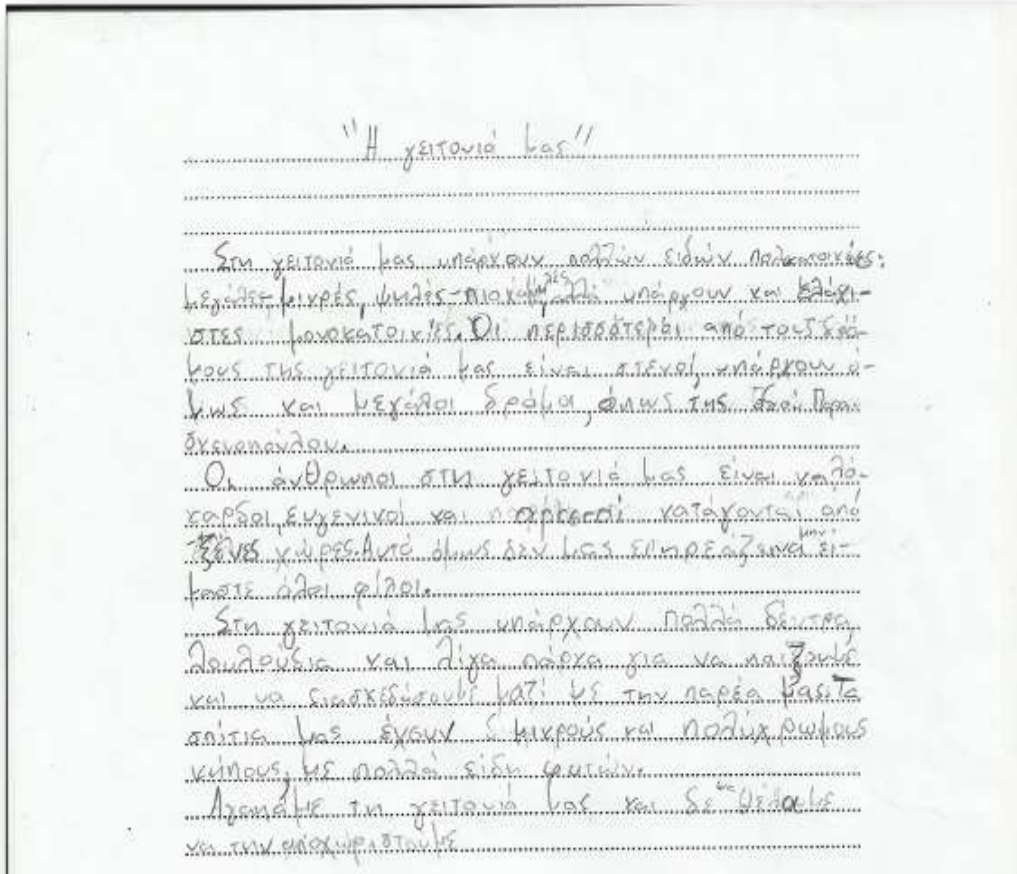 "Η γειτονιά μας"
Στη γειτονιά μας υπάρχουν πολλών ειδών πολυκατοικίες:
μεγάλες-μικρές, ψηλές-πιο χαμηλές αλλά υπάρχουν και ελάχι-
στες μονοκατοικίες. Οι περισσότεροι από τους δρό-
μους της γειτονιά μας είναι στενοί, υπάρχουν ό-
μως και μεγάλοι δρόμοι, όπως της
Οι άνθρωποι στη γειτονιά μας είναι καλό-
καρδοι, ευγενικοί και αρκετοί κατάγονται από
ξένες χώρες. Αυτό όμως δεν μας επηρεάζει να μην εί-
μαστε όλοι φίλοι.
Στη γειτονιά μας υπάρχουν πολλά δέντρα,
λουλούδια και λίγα πάρκα για να παίζουμε
και να διασκεδάσουμε μαζί με την παρέα μας. Τα
σπίτια μας έχουν μικρούς και πολύχρωμους
κήπους, με πολλά είδη φυτών.
Αγαπάμε τη γειτονιά μας και δε θέλαμε
να την αποχωριστούμε